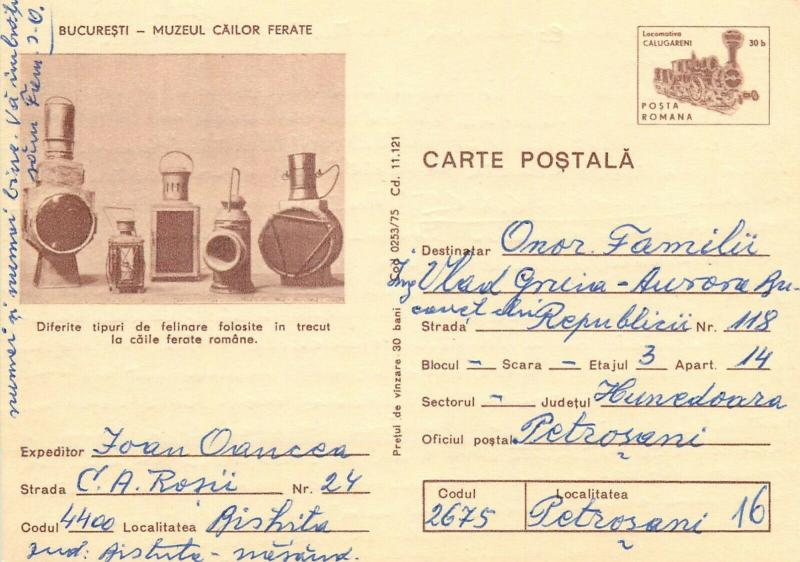 BUCUREȘTI – MUZEUL CĂILOR FERATE
Diferite tipuri de felinare folosite in trecut
la căile ferate române.
numai și numai bine. Vă îmbrăți
Fam. I-O.
Expeditor Ioan Oancea
Strada C. A. Rosii Nr. 24
Codul 4400 Localitatea Bistrita
Jud: Bistrita - năsăud.
Prețul de vînzare 30 bani Cod 0253/75 Cd. 11.121
Locomotiva
CALUGARENI 30 b
POȘTA
ROMANA
CARTE POȘTALĂ
Destinatar Onor. Familii
Ing Vlad Gruia - Aurora Bu-
Strada Republicii Nr. 118
Blocul - Scara - Etajul 3 Apart. 14
Sectorul - Județul Hunedoara
Oficiul poștal Petroșani
Codul Localitatea
2675 Petroșani 16